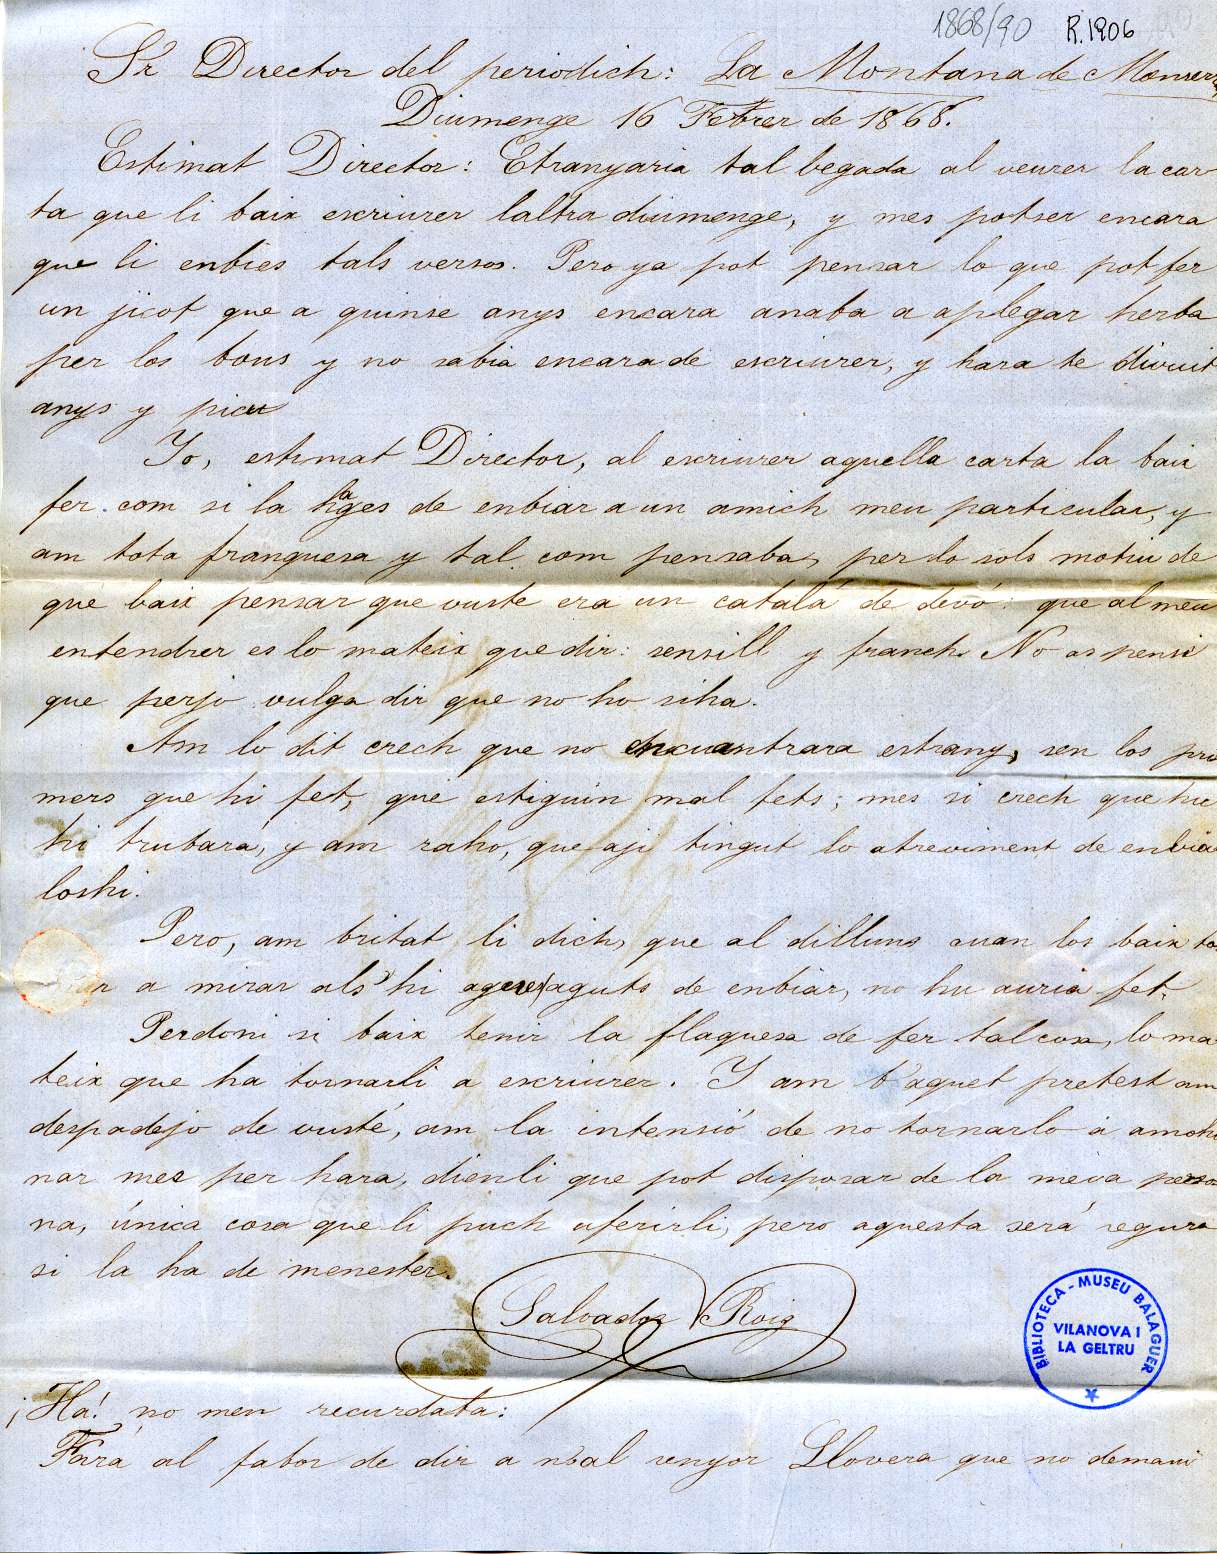 1868/90 R.1206
Sr Director del periodich: La Montana de Monserra
Diumenge 16 Febrer de 1868.
Estimat Director: Etranyaria tal begada al veurer la car-
ta que li baix escriurer laltra diumenge, y mes potser encara
que li enbies tals versos. Pero ya pot pensar lo que pot fer
un jicot que a quinse anys encara anaba a aplegar herba
per los bous y no sabia encara de escriurer, y hara te divuit
anys y picu
Yo, estimat Director, al escriurer aquella carta la baix
fer com si la hages de enbiar a un amich meu particular, y
am tota franquesa y tal com pensaba, per lo sols motiu de
que baix pensar que vuste era un catalá de devó: que al meu
entendrer es lo mateix que dir: sensill y franch. No as pensi
que perjo vulga dir que no ho siha.
Am lo dit crech que no encuantrara estrany, sen los pri
mers que hi fet, que estiguin mal fets; mes si crech que hu
hi trubará, y am raho, que aji tingut lo atreviment de enbia
loshi.
Pero, am britat li dich, que al dilluns cuan los baix to
r a mirar als hi aguts de enbiar, no hu auria fet.
Perdoni si baix tenir la flaquesa de fer tal cosa, lo ma
teix que ha tornarli a escriurer. Y am t'aquet pretest am
despadejo de vusté, am la intensió de no tornarlo á amohi
nar mes per hara, dienli que pot disposar de la meva perso
na, única cosa que li puch uferirli; pero aquesta será segura
si la ha de menester.
Salvador Roig
¡Ha! no men recurdaba:
Fará al fabor de dir á n'al senyor Llovera que no demani
BIBLIOTECA - MUSEU BALAGUER
VILANOVA I
LA GELTRU